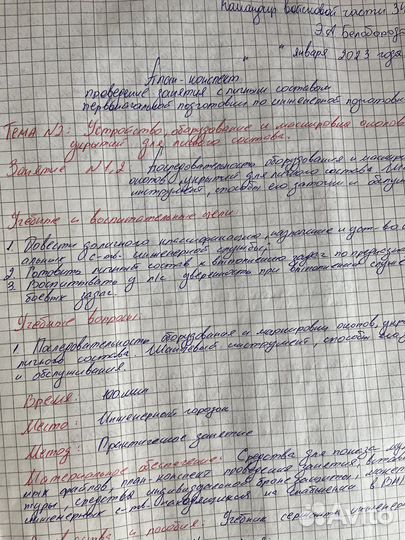 Командир войсковой части 34
Э.А Белобород
" " января 2023 года
План-конспект
проведение занятия с личным составом
первоначальной подготовки по инженерной подготовк
Тема №2: Устройство, оборудование и маскировка окопов
укрытий для личного состава.
Занятие №1,2 Последовательность оборудования и маскиров
окопов, укрытий для личного состава. Шан
инструмент, способы его заточки и обслуж
Учебные и воспитательные цели:
1. Довести до личного классификацию, назначение и уст-во
с-тв инженерной службы;
2. Готовить личный состав к выполнению задач по
3. Воспитывать у л/с уверенность при выполнении служе
боевых задач.
Учебные вопросы:
1. Последовательность оборудования и маскировки окопов, укр
личного состава. Шанцевый инструмент, способы его
и обслуживания.
Время: 100мин
Место: Инженерный городок
Метод: Практическое занятие
Материальное обеспечение: Средства для показа
файлов, план-конспект проведения занятия,
туры, средства индивидуальной бронезащиты,
инженерных с-тв находящихся на снабжении в
и пособия: Учебник сержанта инженерн
Avito